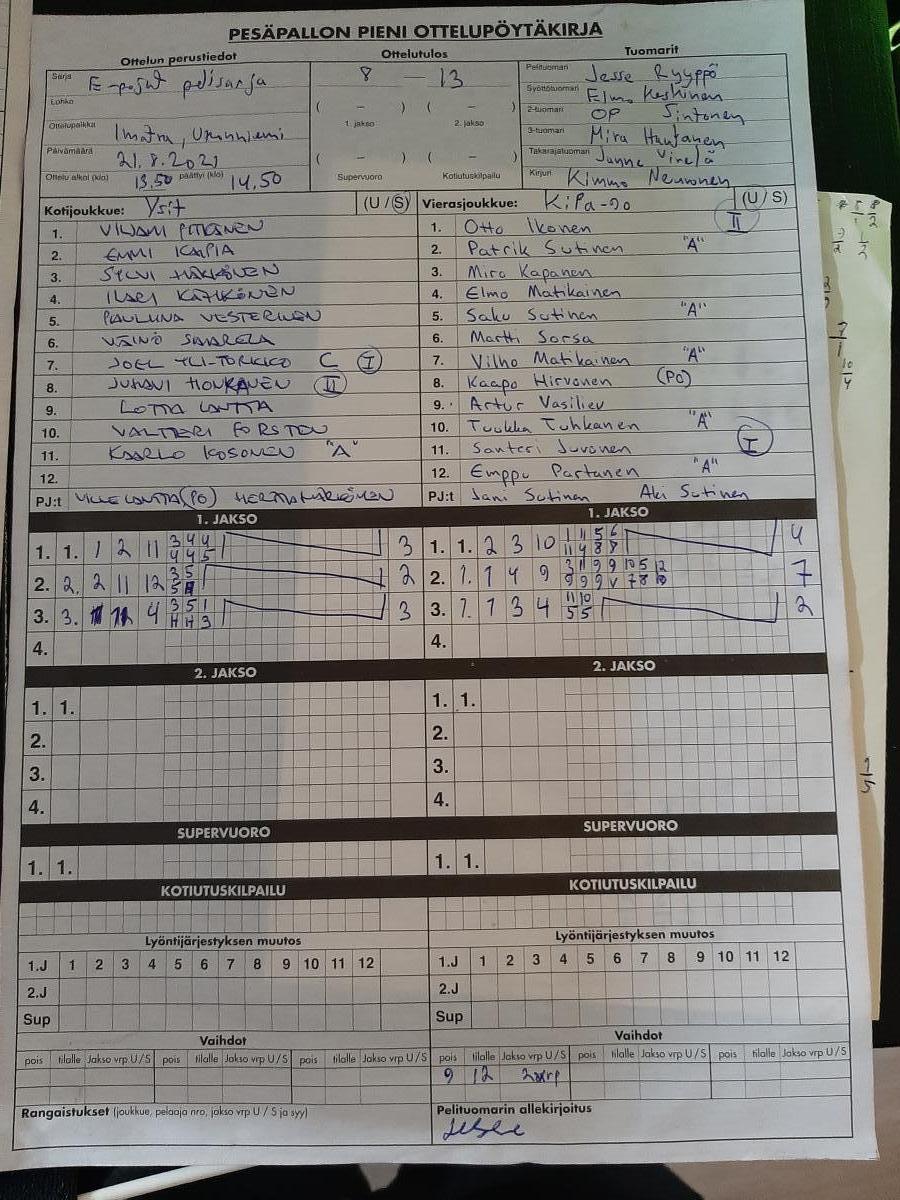 PESÄPALLON PIENI OTTELUPÖYTÄKIRJA
Ottelun perustiedot Ottelutulos Tuomarit
Sarja E-pojat pelisarja 8 — 13 Pelituomari Jesse Ryyppö
Lohko Syöttötuomari Elmo Keskinen
( – ) ( – ) 2-tuomari OP Sintonen
Ottelupaikka Imatra, Ukonniemi 1. jakso 2. jakso 3-tuomari Mira Hautanen
Päivämäärä 21.8.2021 ( – ) ( – ) Takarajatuomari Janne Virelä
Ottelu alkoi (klo) 13,50 päättyi (klo) 14,50 Supervuoro Kotiutuskilpailu Kirjuri Kimmo Neuvonen
Kotijoukkue: Ysit (U / S) Vierasjoukkue: KiPa-00 (U / S)
1. VILJAMI PITKÄNEN 1. Otto Ikonen II
2. EMMI KARPIA 2. Patrik Sutinen "A"
3. SYLVI HÄKKÄNEN 3. Miro Kapanen
4. ILARI KÄTIKÖNEN 4. Elmo Matikainen
5. PAULIINA VESTERINEN 5. Saku Sutinen "A"
6. VÄINÖ SAARELA 6. Martti Sorsa
7. JOEL YLI-TORKKO C I 7. Vilho Matikainen "A"
8. JUHAVI HONKANEN II 8. Kaapo Hirvonen (PO)
9. LOTTA LANTTA 9. Artur Vasiliev
10. VALTTERI FORSTEN 10. Tuukka Tuhkanen "A"
11. KAARLO KOSONEN "A" 11. Santeri Juvonen I
12. 12. Emppu Partanen "A"
PJ:t VILLE LANTTA (PO) HERTTA PJ:t Jani Sutinen Aki Sutinen
1. JAKSO 1. JAKSO
1. 1. 1 2 11 3 4 4 3 1. 1. 2 3 10 1 11 5 6 4
4 4 5 11 4 8 8
2. 2. 2 11 12 3 5 2 2. 1. 1 4 9 3 11 9 9 10 5 12 7
3. 3. 4 3 5 1 3 3. 1. 1 3 4 11 10 2
H H 3 5 5
4. 4.
2. JAKSO 2. JAKSO
1. 1. 1. 1.
2. 2.
3. 3.
4. 4.
SUPERVUORO SUPERVUORO
1. 1. 1. 1.
KOTIUTUSKILPAILU KOTIUTUSKILPAILU
Lyöntijärjestyksen muutos Lyöntijärjestyksen muutos
1.J 1 2 3 4 5 6 7 8 9 10 11 12 1.J 1 2 3 4 5 6 7 8 9 10 11 12
2.J 2.J
Sup Sup
Vaihdot Vaihdot
pois tilalle Jakso vrp U / S pois tilalle Jakso vrp U / S pois tilalle Jakso vrp U / S pois tilalle Jakso vrp U / S pois tilalle Jakso vrp U / S pois tilalle Jakso vrp U / S
9 12
Rangaistukset (joukkue, pelaaja nro, jakso vrp U / S ja syy) Pelituomarin allekirjoitus